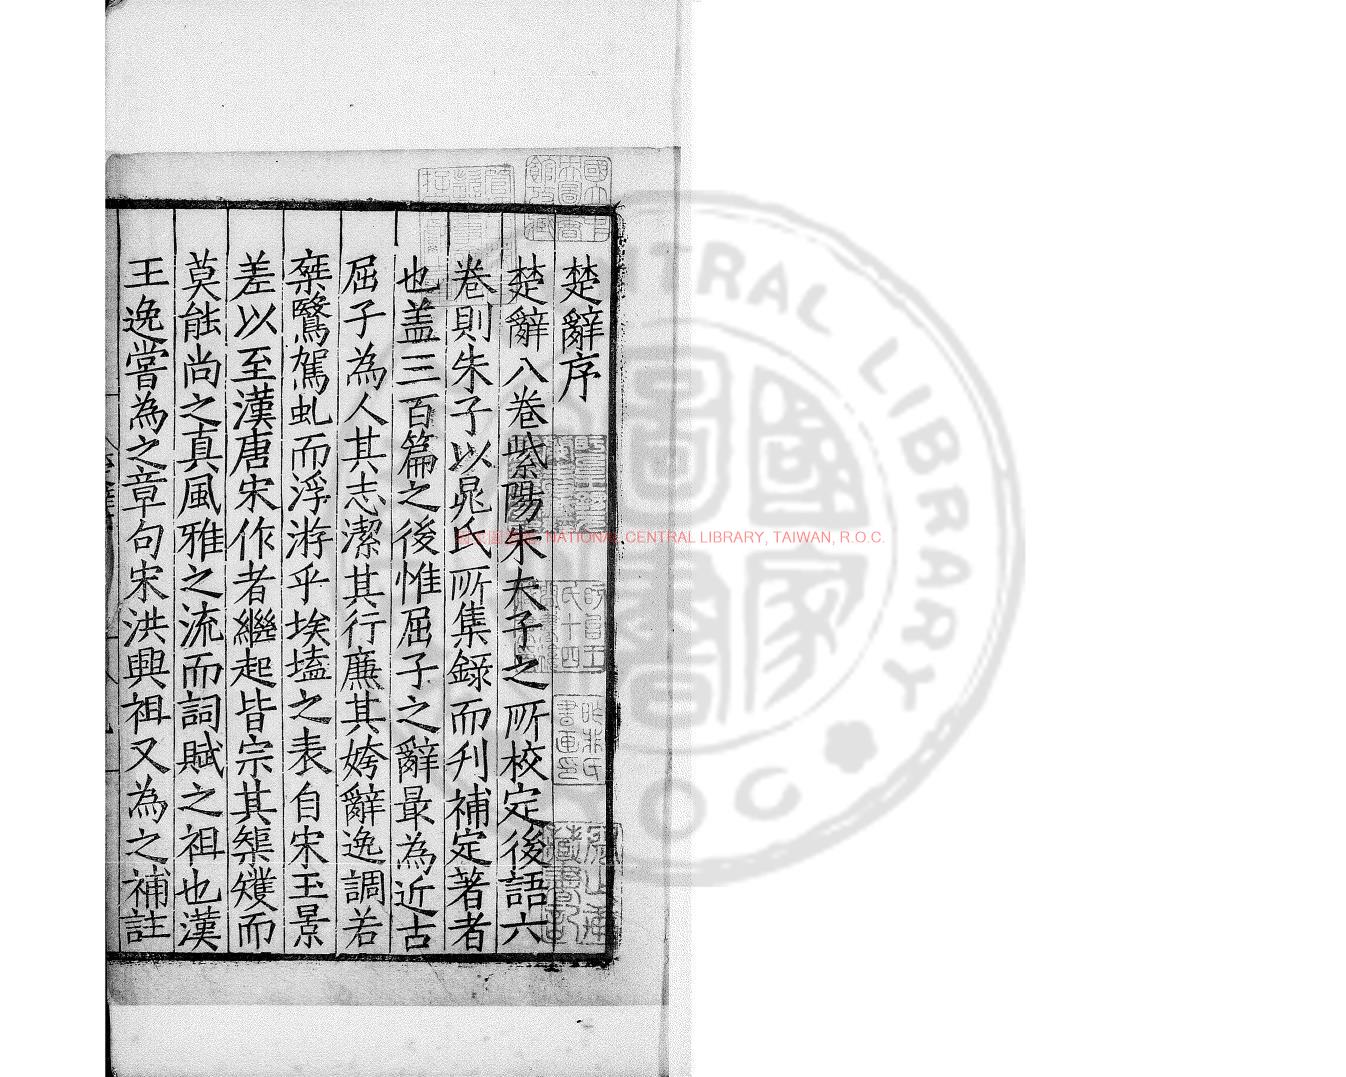 楚辭序
楚辭八卷紫陽朱夫子之所校定後語六
卷則朱子以晁氏所集錄而刋補定著者
也盖三百篇之後惟屈子之辭最為近古
屈子為人其志潔其行廉其姱辭逸調若
椉鷖駕虬而浮游乎埃壒之表自宋玉景
差以至漢唐宋作者繼起皆宗其榘矱而
莫能尚之真風雅之流而詞賦之祖也漢
王逸嘗為之章句宋洪興祖又為之補註
NATIONAL CENTRAL LIBRARY, TAIWAN, R.O.C.
CENTRAL LIBRARY